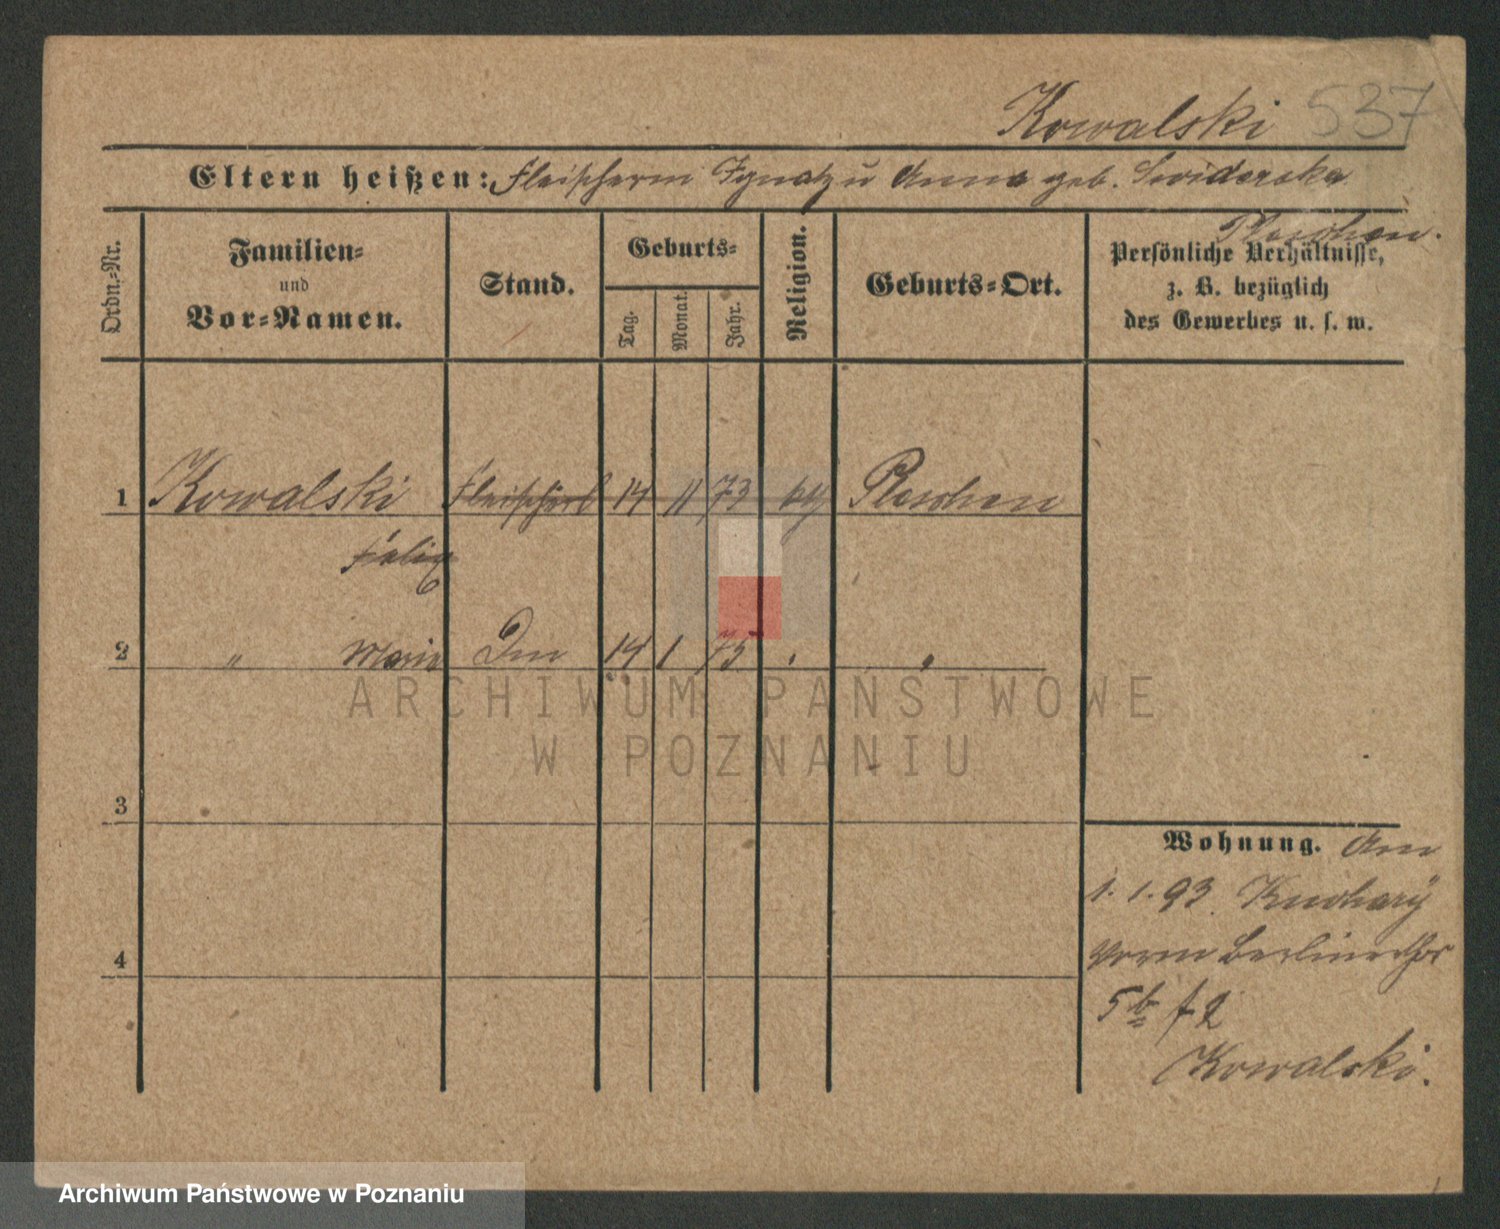 Kowalski 537
Eltern heißen: Fleischerm Ignatz u Anna geb. Swiderska
Pleschen.
Ordn.-Nr.
Familien-
und
Vor-Namen.
Stand.
Geburts-
Tag.
Monat.
Jahr.
Religion.
Geburts-Ort.
Persönliche Verhältnisse,
z. B. bezüglich
des Gewerbes u. s. w.
1 Kowalski 14 11 73 Pleschen
Felix
2 " Marie 14 1 75
3
4
Wohnung. Am
1. 1. 93
vorm Berlinerthor
5b
Kowalski.
ARCHIWUM PAŃSTWOWE
W POZNANIU
Archiwum Państwowe w Poznaniu